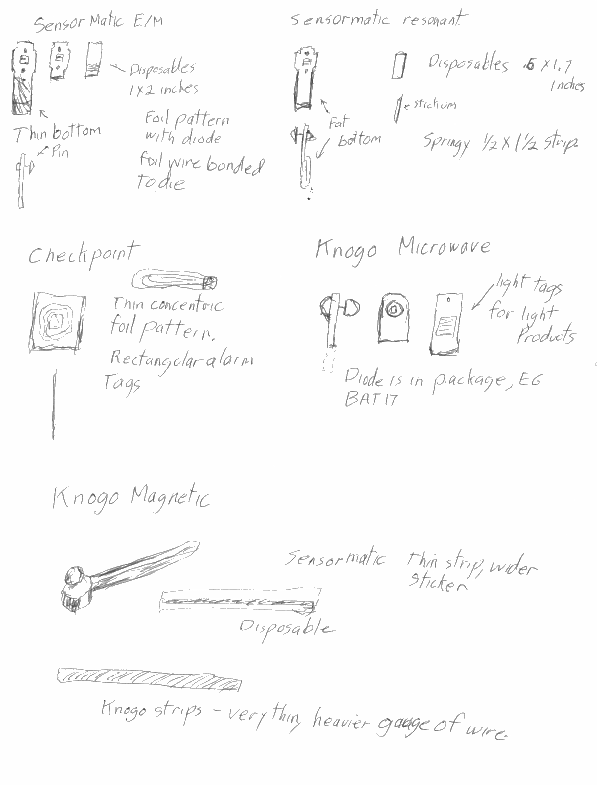 Sensor Matic E/M
Disposables
1 x 2 inches
Thin bottom
Pin
Foil pattern
with diode
foil wire bonded
To die
Sensormatic resonant
Disposables .5 x 1.7
Inches
Fat
bottom
Springy 1/2 x 1 1/2 strip
Checkpoint
Thin concentric
foil pattern,
Rectangular alarm
Tags
Knogo Microwave
light tags
for light
Products
Diode is in package, EG
BAT 17
Knogo Magnetic
Sensormatic Thin strip, wider
sticker
Disposable
Knogo strips - very thin, heavier gauge of wire.